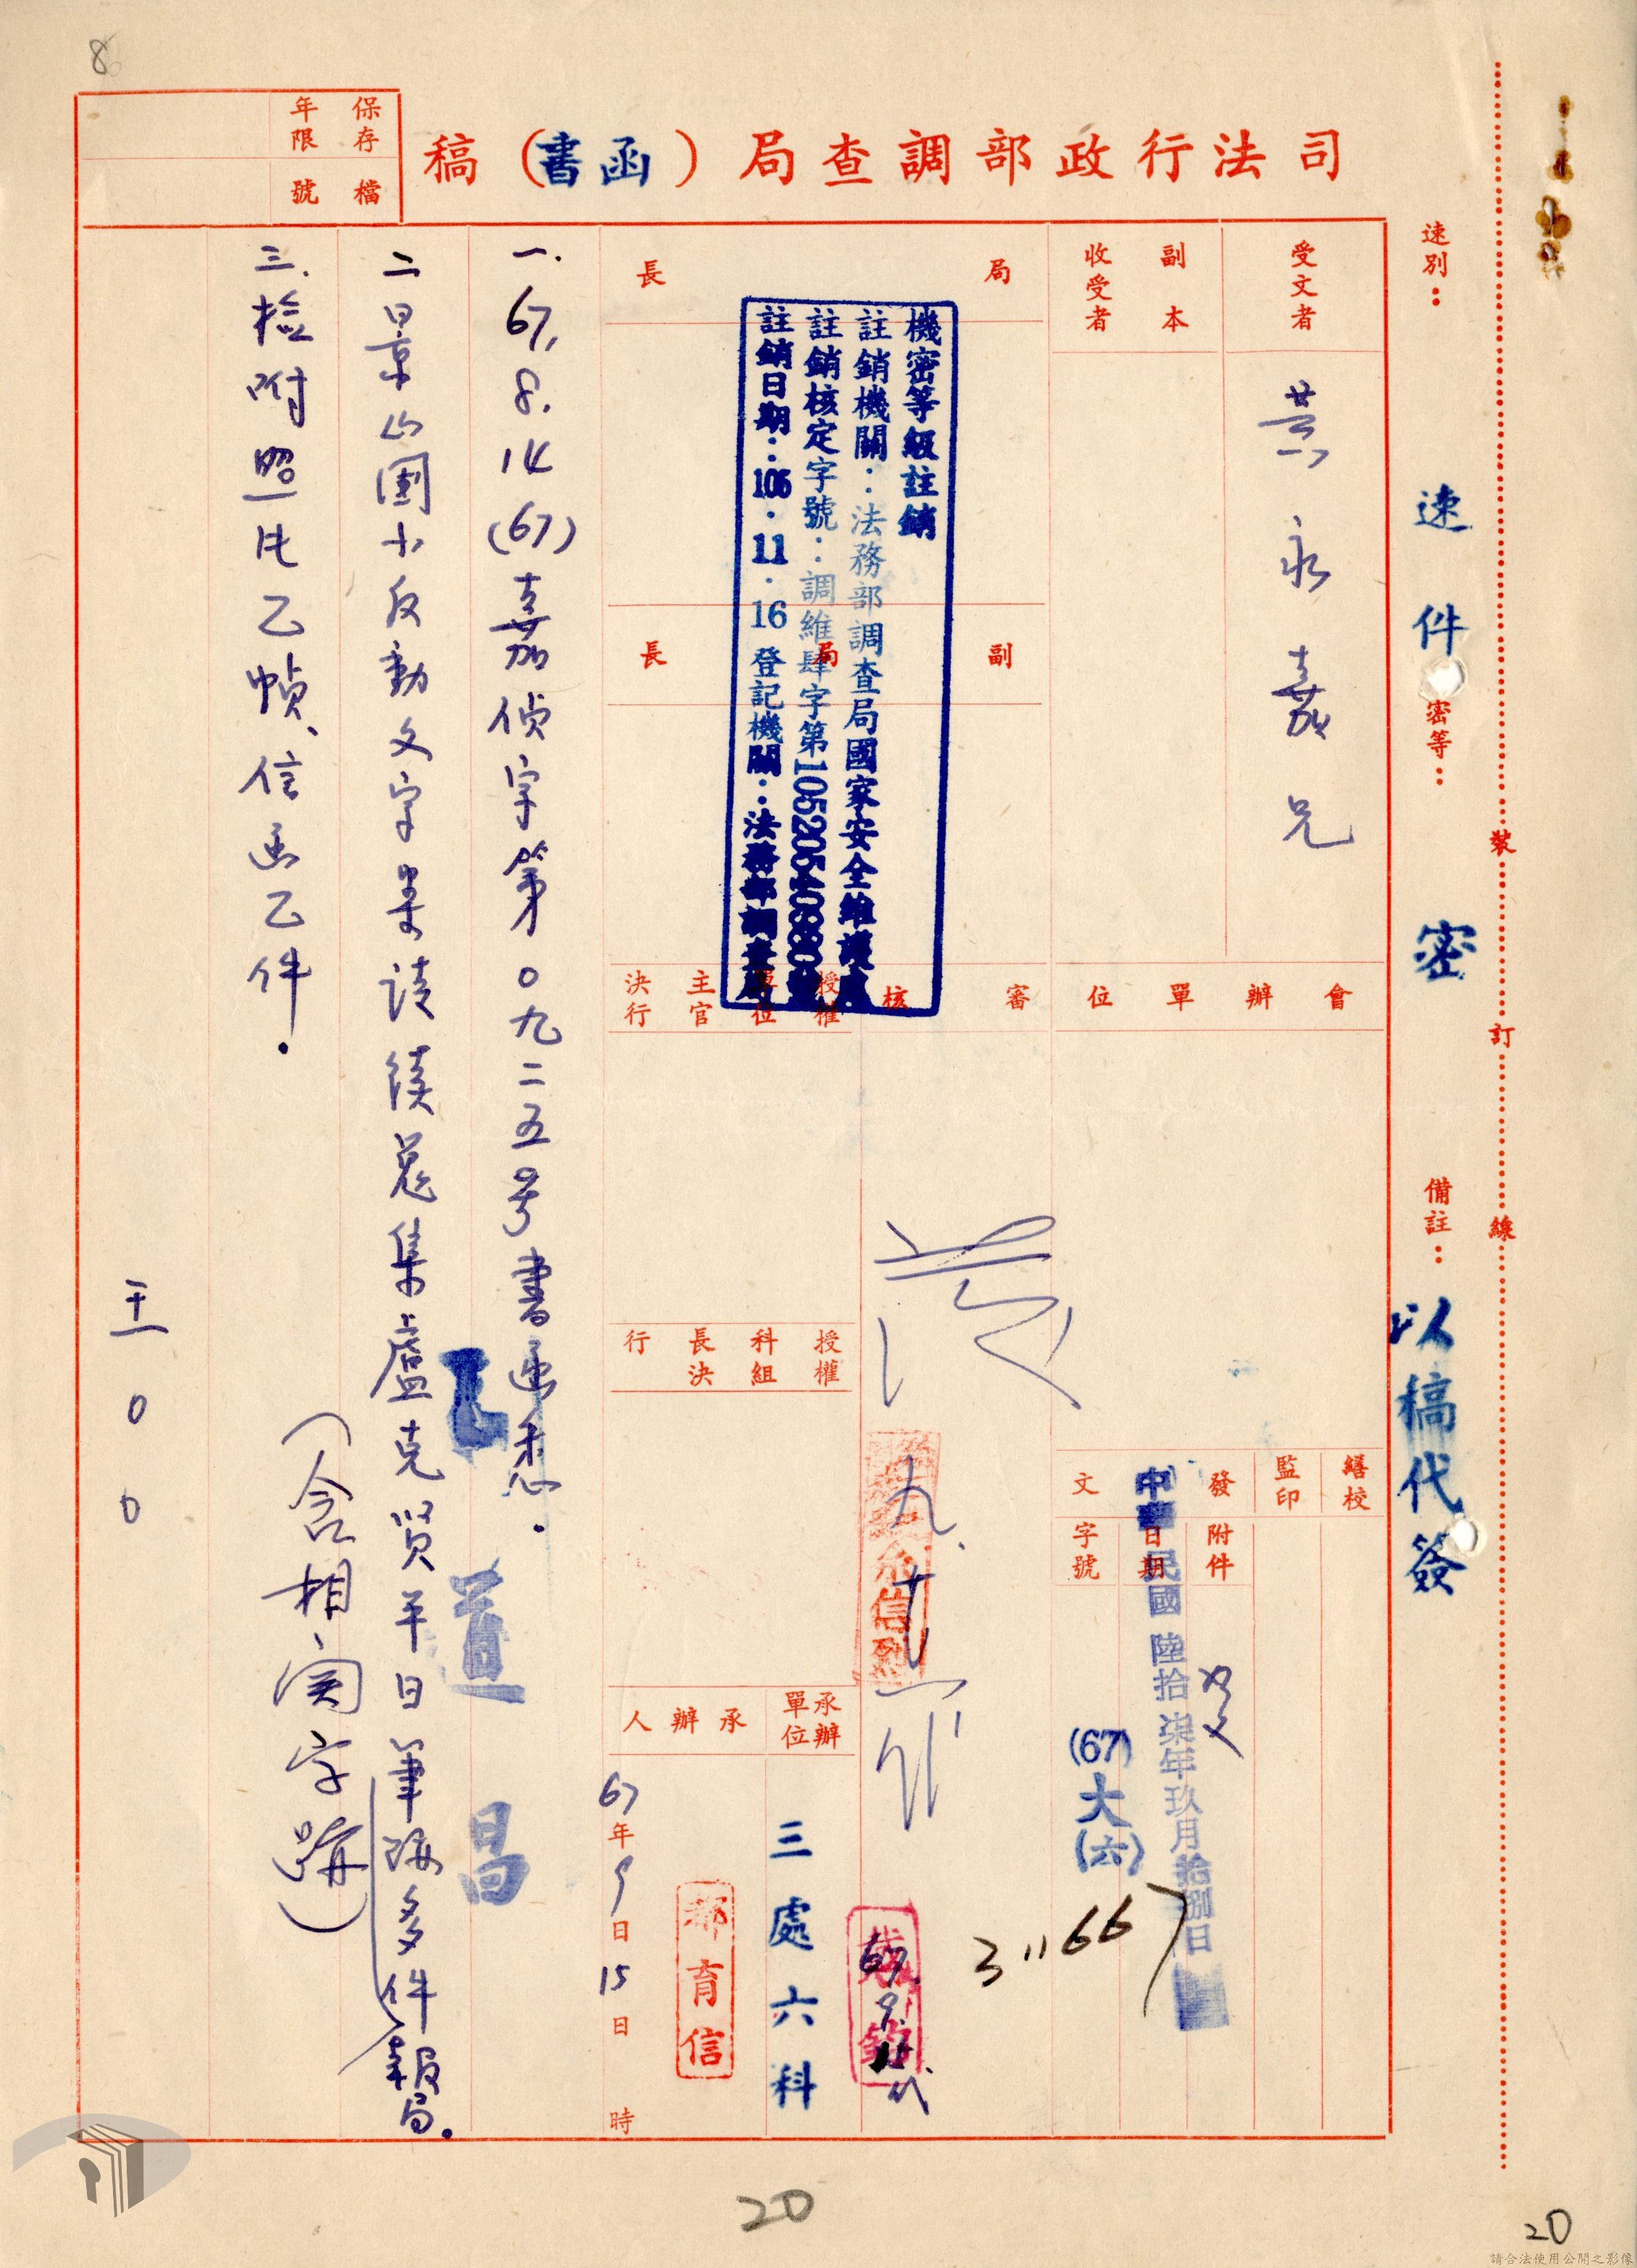 8
司法行政部調查局(函書)稿
保存年限
檔號
速別：
速件
密等：
密
備註：
以稿代簽
裝
訂
線
受文者
黃永嘉兄
副本
收受者
局長
副局長
機密等級註銷
註銷機關：法務部調查局國家安全維護處
註銷核定字號：調維肆字第10520540880號
註銷日期：105．11．16登記機關：法務部調查局
會辦單位
審核
授權
單位
主官
決行
授權
科組
長決
行
繕校
監印
發文
附件
日期
字號
中華民國陸拾柒年玖月拾捌日
(67)大(六)
31166
承辦單位
三處六科
承辦人
67年9日15日時
郝育信
余信烈
67.9.
代
一.67.8.14(67)嘉偵字第0九二五号書函悉.
二景山國小反動文字案請續蒐集盧克賢平日筆跡多件報局.
(含相関字跡)
三.檢附照片乙幀、信函乙件.
王道昌
王00
20
20
請合法使用公開之影像